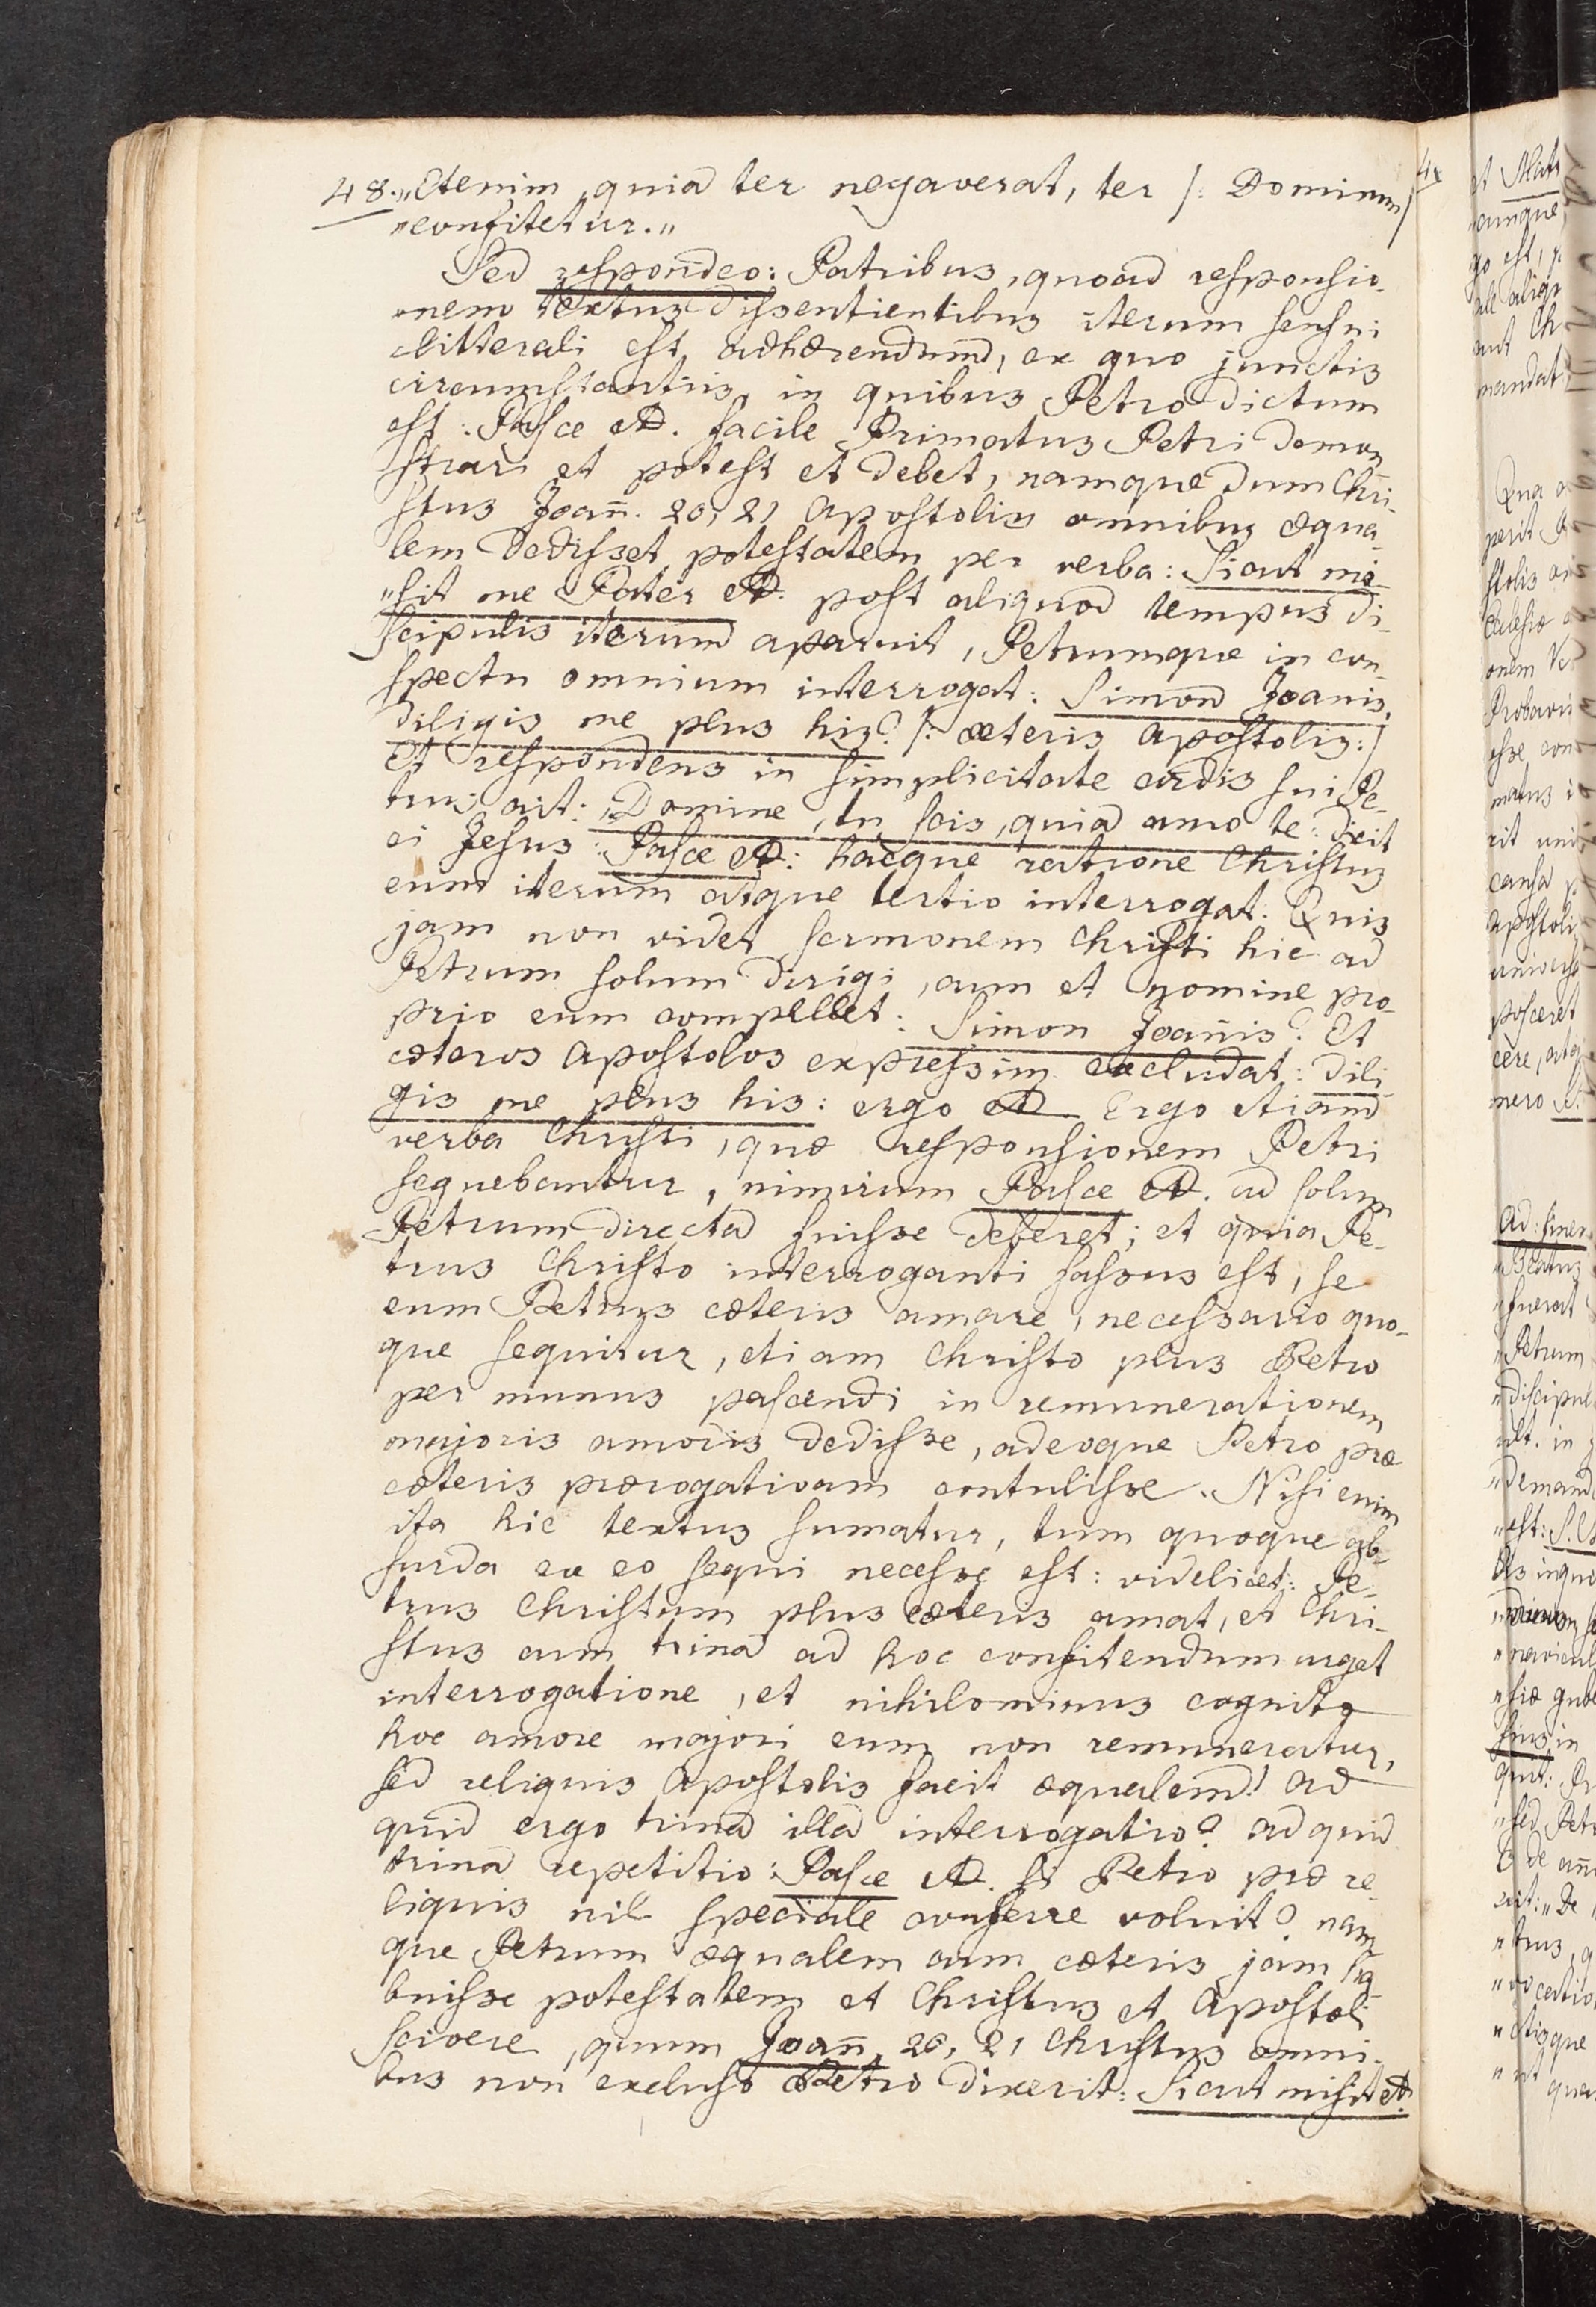 48. „Etenim, quia ter negaverat, ter /: Dominum /
„confitetur.„
Sed respondeo: Patribus, quoad responsio-
nem textus dissentientibus iterum sensui
litterali est adhærendum, ex quo junctis
circumstantiis, in quibus Petro dictum
est: Pasce etc. facile Primatus Petri demon
strari et potest et debet, namque dum Chri-
stus Joan̅. 20, 21 Apostolis omnibus æqua-
lem dedisset potestatem per verba: Sicut mi-
„sit me Pater etc. post aliquod tempus di-
scipulis iterum aparuit, Petrumque in con-
spectu omnium interrogat: Simon Joanis,
diligis me plus his? /: cæteris Apostolis: /
et respondens in simplicitate cordis sui Pe-
trus ait: Domine, tu scis, quia amo te: dicit
ei Jesus: Pasce etc: hacque ratione Christus
eum iterum atque tertio interrogat. Quis
jam non videt sermonem Christi hic ad
Petrum solum dirigi, cum et nomine pro-
prio eum compellet: Simon Joan̅is? Et
cæteros Apostolos expressim excludat: dili-
gis me plus his: ergo etc Ergo etiam
verba Christi, quæ responsionem Petri
sequebantur, nimirum Pasce etc. ad solum
Petrum directa fuisse deberet; et quia Pe-
trus Christo interroganti fassus est, se
eum Petrus cæteris amare, necessario quo-
que sequitur, etiam Christo plus Petro
per munus pascendi in remunerationem
majoris amoris dedisse, adeoque Petro præ
cæteris prærogativam contulisse. Nisi enim
ita hic textus sumatur, tum quoque ab-
surda ex eo sequi necesse est: videlicet: Pe-
trus Christum plus cæteris amat, et Chri-
stus eum trina ad hoc confitendum urget
interrogatione, et nihilominus cognito
hoc amore majori eum non remuneratur,
sed reliquis Apostolis facit æqualem! ad
quid ergo trina illa interrogatio? ad quid
trina repetitio: Pasce etc. si Petro præ re-
liquis nil speciale conferre voluit? nam
que Petrum æqualem cum cæteris jam ha-
buisse potestatem et Christus et Apostoli
scivere, quum Joan̅. 20, 21 Christus omni-
bus non excluso Petro dixerit: Sicut misit etc.